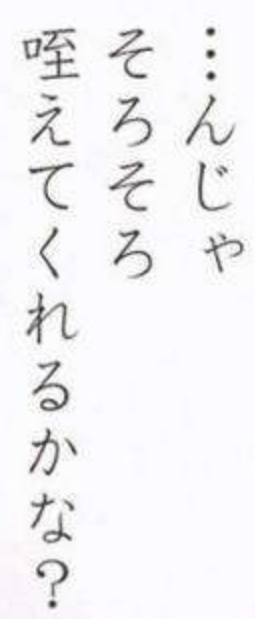 …んじゃ
そろそろ
咥えてくれるかな?